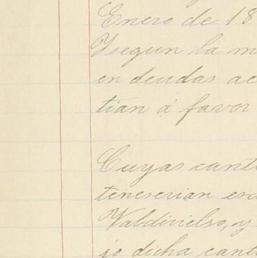 Enero de 18
Ysegun la m
en deudas ac
tian á favor
Cuyas canti
Valdivielso, y
jo dicha cant